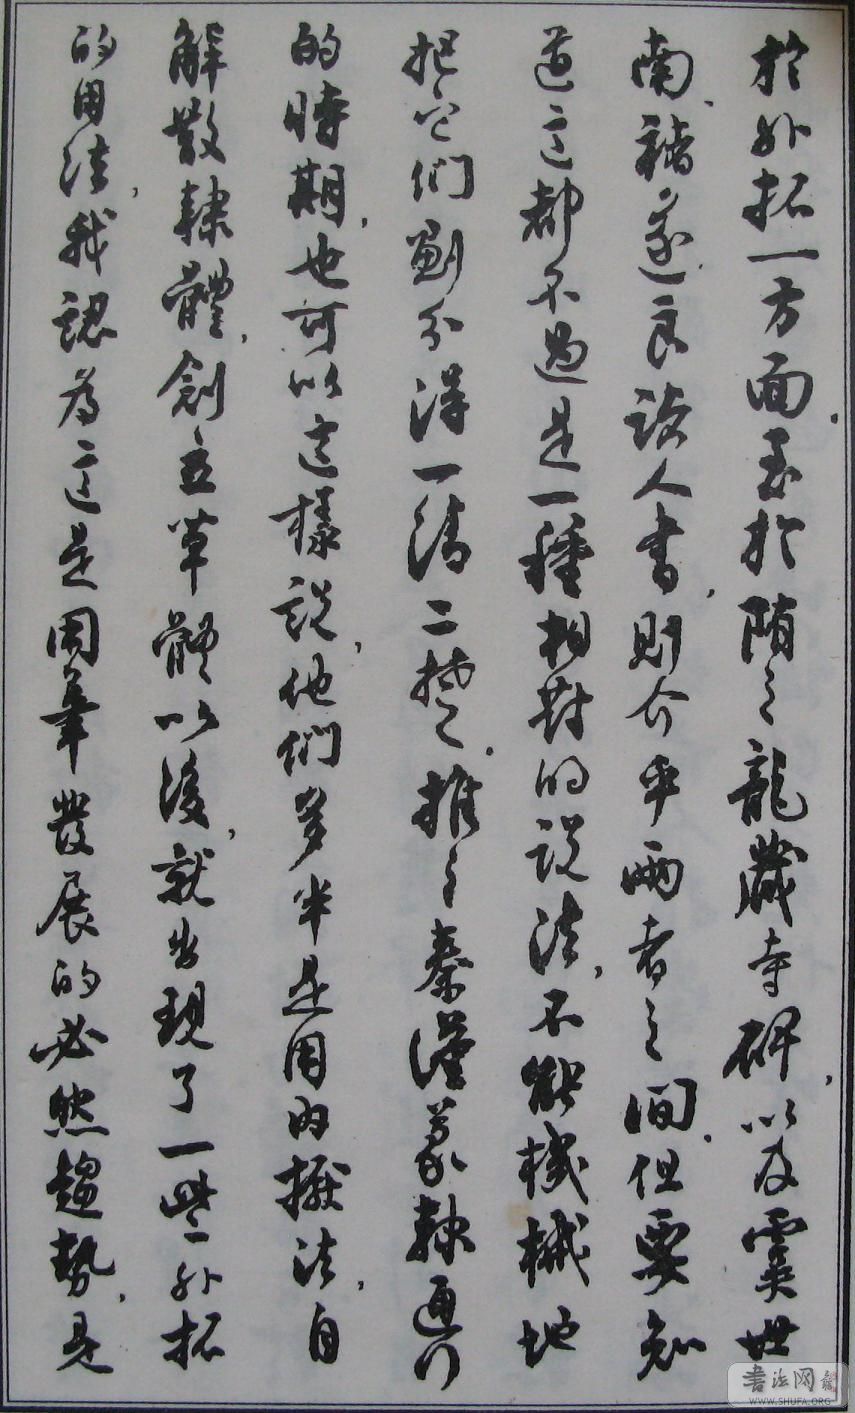 於外拓一方面。至於隋之龍藏寺碑，以及虞世
南、褚遂良諸人書，則介乎兩者之間。但要知
道這都不過是一種相對的說法，不能機械地
把它們劃分得一清二楚。推之秦漢篆隸通行
的時期，也可以這樣說，他們多半是用內擫法，自
解散隸體，創立草體以後，就出現了一些外拓
的用法，我認為這是用筆發展的必然趨勢，是
書法网
WWW.SHUFA.ORG